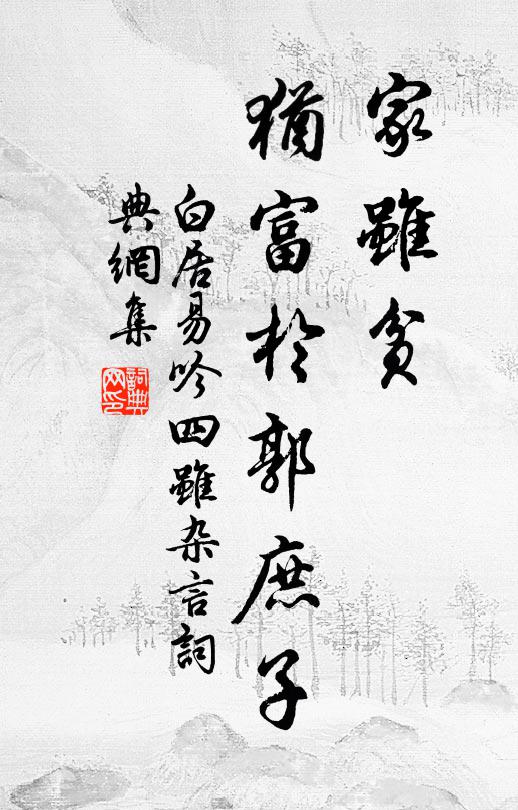 家雖貧
猶富於郭庶子
白居易吟四雖杂言詞
典網集
詞典网印